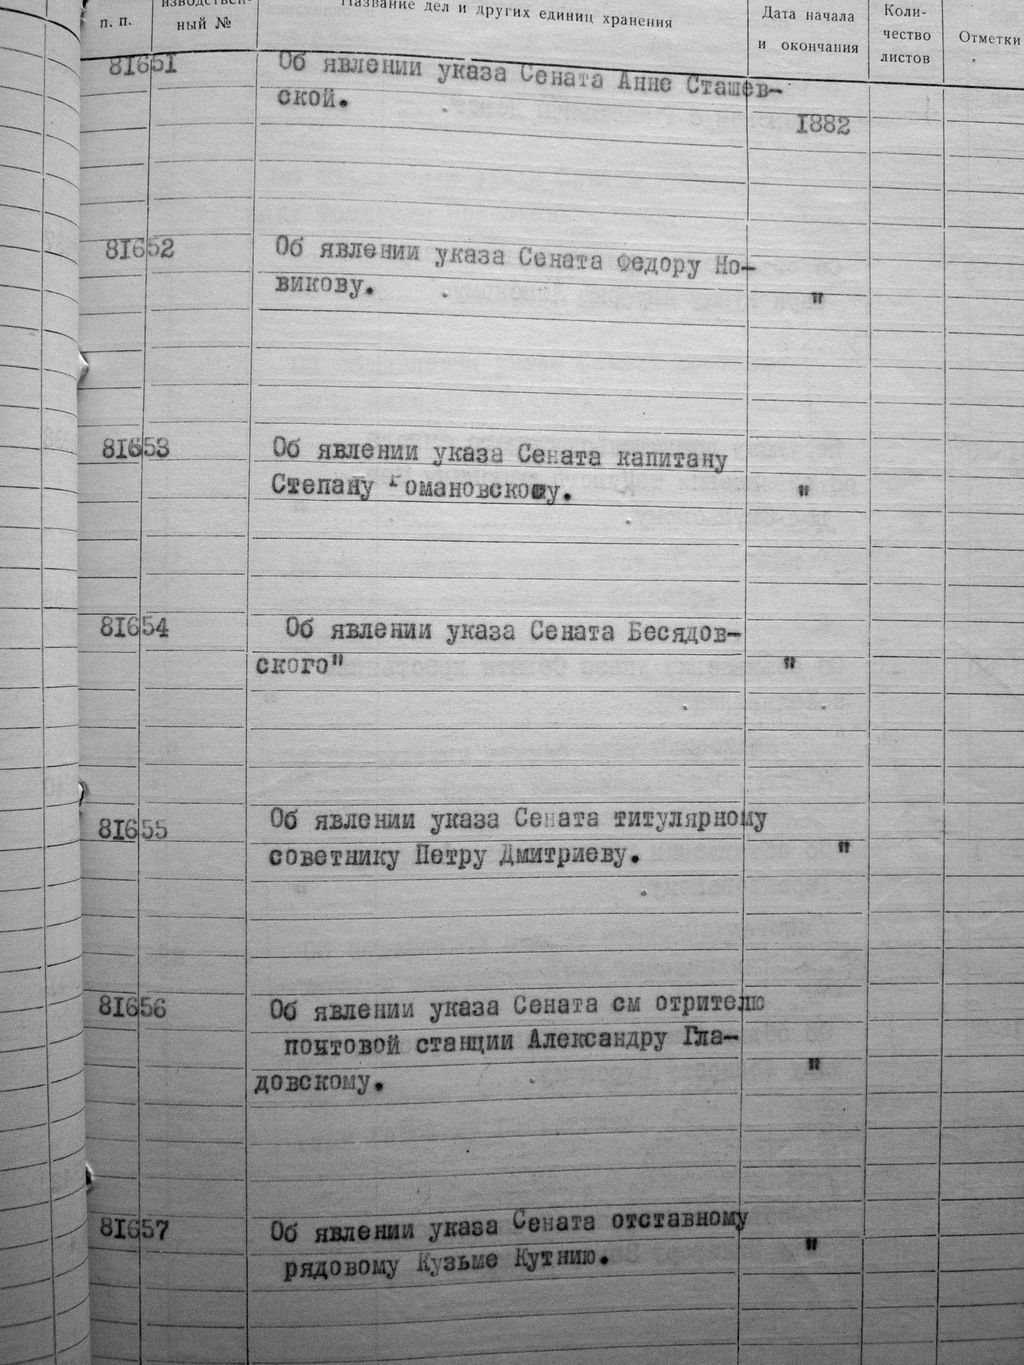 п. п.
изводствен-
ный №
Название дел и других единиц хранения
Дата начала
и окончания
Коли-
чество
листов
Отметки
81651
Об явлении указа Сената Анне Сташев-
ской.
1882
81652
Об явлении указа Сената Федору Но-
викову.
"
81653
Об явлении указа Сената капитану
Степану Романовскому.
"
81654
Об явлении указа Сената Бесядов-
ского"
"
81655
Об явлении указа Сената титулярному
советнику Петру Дмитриеву.
"
81656
Об явлении указа Сената см отрителю
почтовой станции Александру Гла-
довскому.
"
81657
Об явлении указа Сената отставному
рядовому Кузьме Кутнию.
"